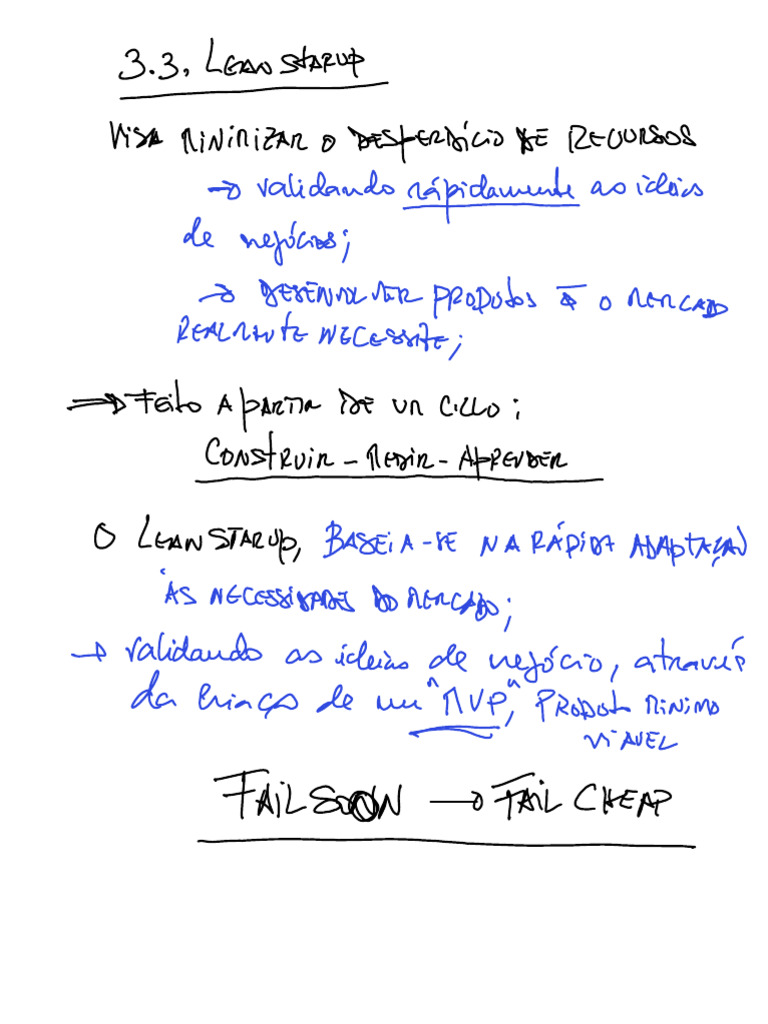 3.3. LEAN STARUP
VISA MINIMIZAR O DESPERDÍCIO DE RECURSOS
→ validando rápidamente as ideias
de negócios;
→ DESENVOLVER PRODUTOS q̄ O MERCADO
REALMENTE NECESSITE;
⇒ FEITO A PARTIR DE UM CICLO:
CONSTRUIR - MEDIR - APRENDER
O LEAN STARUP, BASEIA-SE NA RÁPIDA ADAPTAÇÃO
ÀS NECESSIDADES DO MERCADO;
→ validando as ideias de negócio, através
da criação de um "MVP", PRODUTO MINIMO
VIAVEL
FAIL SOON → FAIL CHEAP